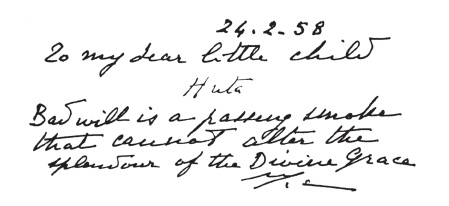 24.2.58
To my dear little child
Huta
Bad will is a passing smoke
that cannot alter the
splendour of the Divine Grace